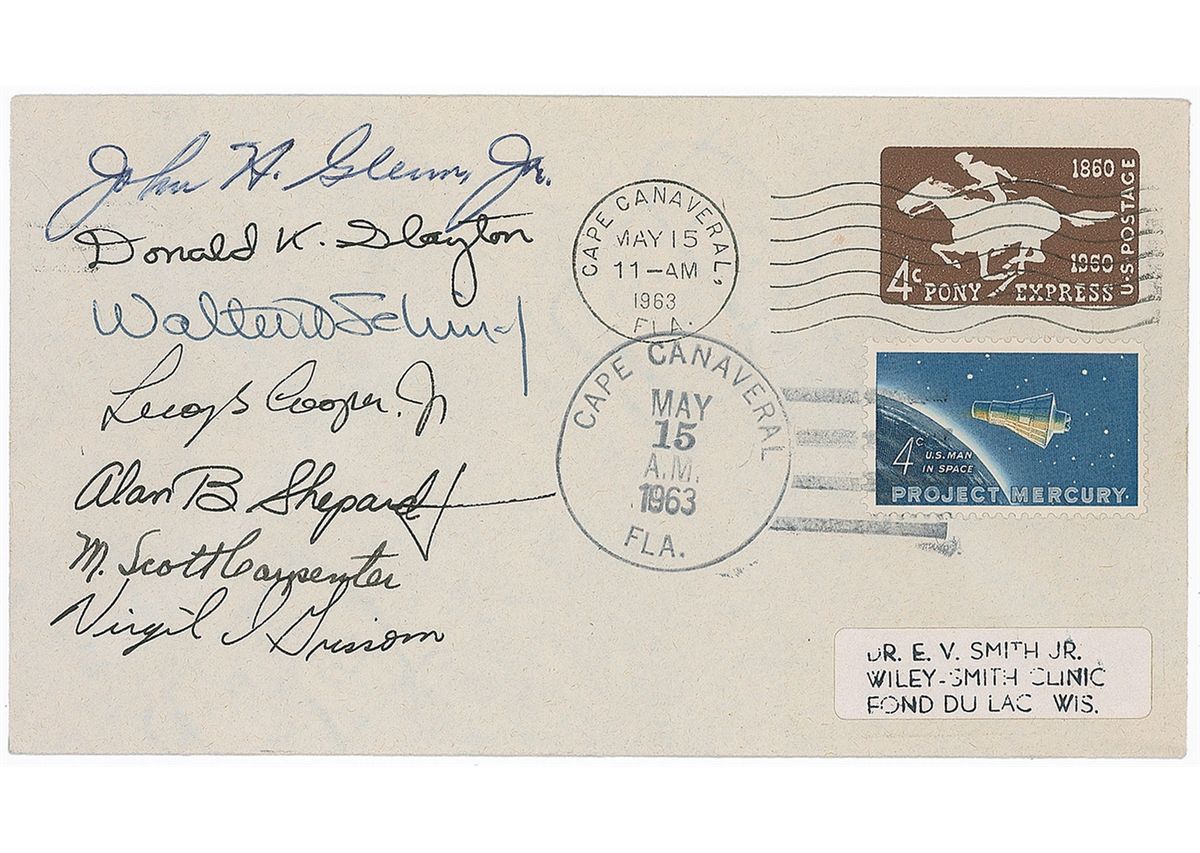 John H. Glenn, Jr.
Donald K. Slayton
Walter M Schirra
Leroy G Cooper, Jr
Alan B. Shepard Jr
M. Scott Carpenter
Virgil I Grissom
CAPE CANAVERAL,
MAY 15
11-AM
1963
FLA.
CAPE CANAVERAL
MAY
15
A.M.
1963
FLA.
1860
1960
U.S. POSTAGE
4c PONY EXPRESS
4c U.S. MAN
IN SPACE
PROJECT MERCURY
DR. E. V. SMITH JR.
WILEY-SMITH CLINIC
FOND DU LAC WIS.